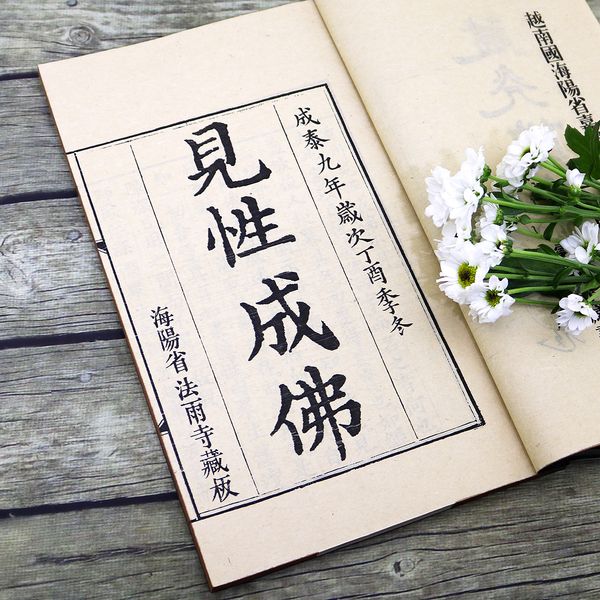 越南國海陽省嘉
成泰九年歲次丁酉季冬
見性成佛
海陽省法雨寺藏板